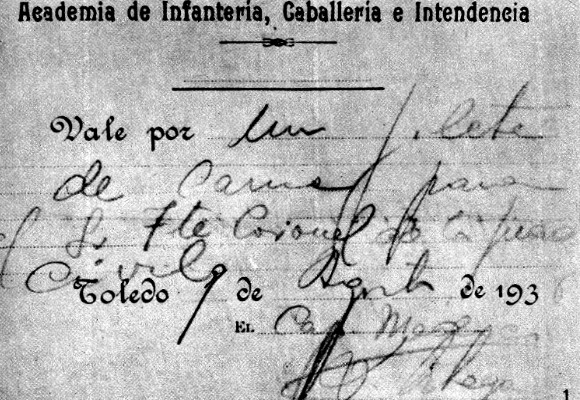 Academia de Infantería, Caballería e Intendencia
Vale por un filete
de carne para
el Sr Tte Coronel de la Guardia
Civil
Toledo 9 de Agosto de 1936
EL Cap. Mayor
1